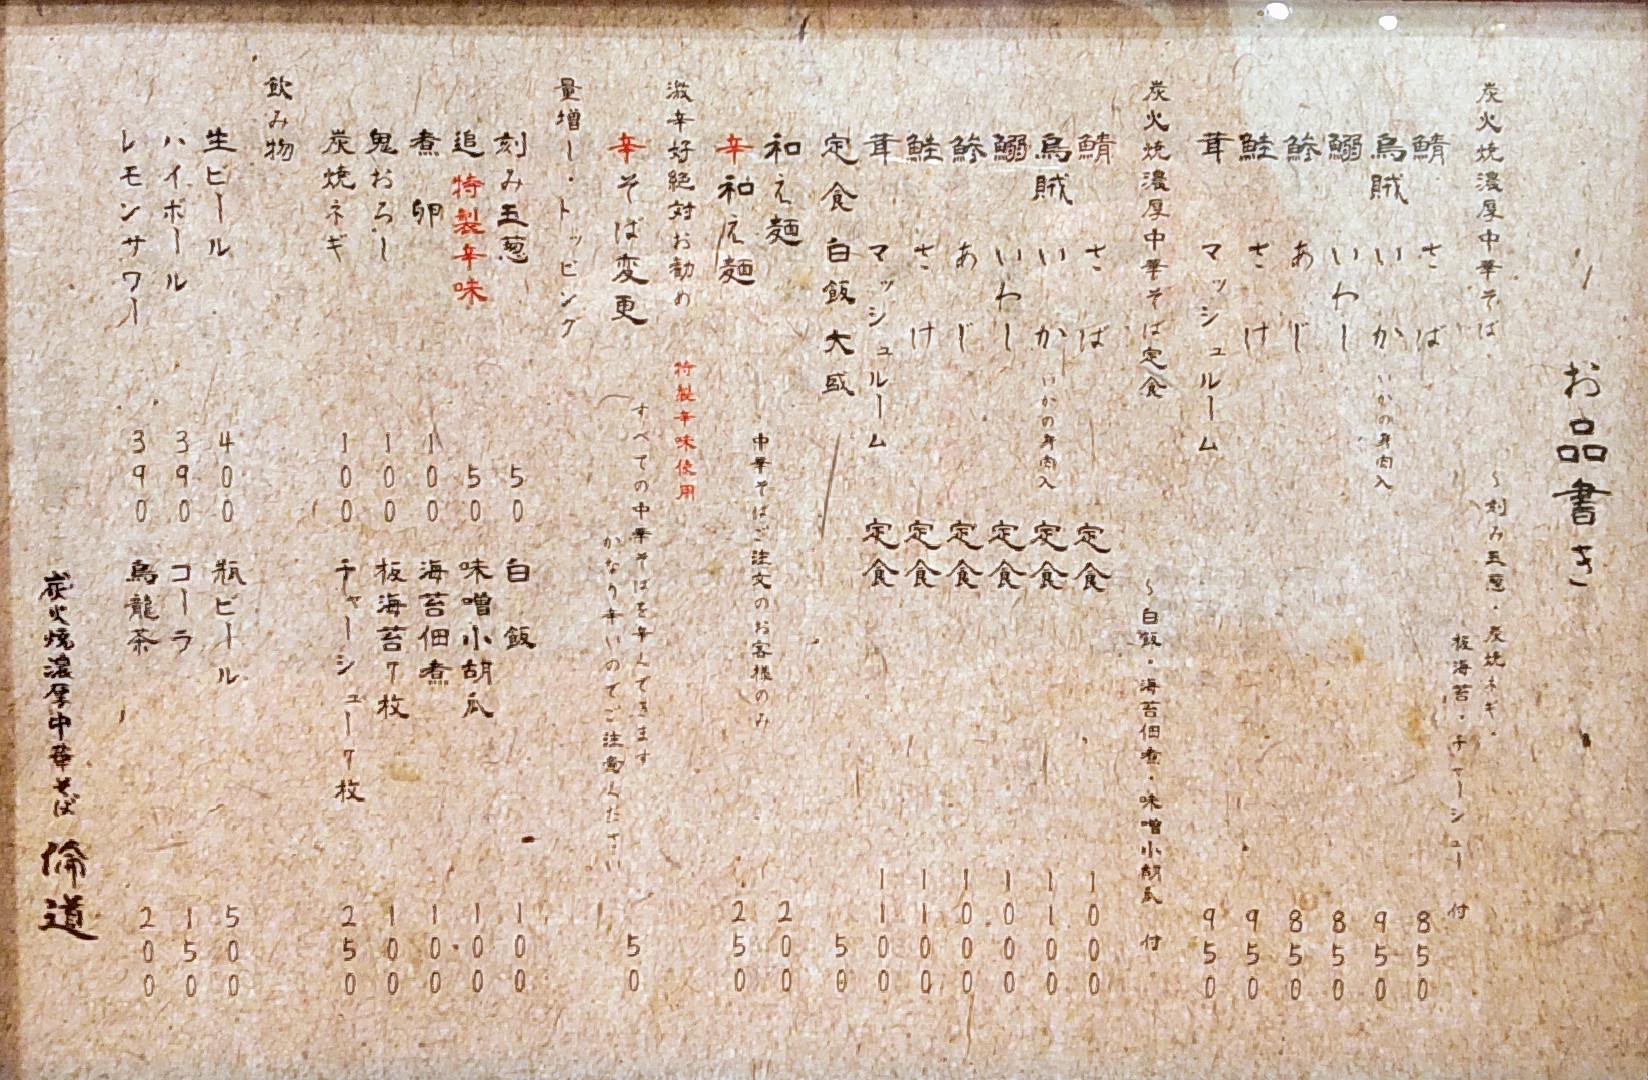 お品書き
炭火焼濃厚中華そば
～刻み玉葱・炭焼ネギ・
板海苔・チャーシュー 付
鯖 さば 850
烏賊 いか いかの身肉入 950
鰯 いわし 850
鯵 あじ 850
鮭 さけ 950
茸 マッシュルーム 950
炭火焼濃厚中華そば定食
～白飯・海苔佃煮・味噌小胡瓜 付
鯖 さば 定食 1000
烏賊 いか いかの身肉入 定食 1100
鰯 いわし 定食 1000
鯵 あじ 定食 1000
鮭 さけ 定食 1100
茸 マッシュルーム 定食 1100
定食 白飯 大盛 50
和え麺 200
中華そばご注文のお客様のみ
辛和え麺 250
激辛好絶対お勧め 特製辛味使用
辛そば変更 50
すべての中華そばを辛くできます
かなり辛いのでご注意ください
量増し・トッピング
刻み玉葱 50 白飯 100
追特製辛味 50 味噌小胡瓜 100
煮卵 100 海苔佃煮 100
鬼おろし 100 板海苔7枚 100
炭焼ネギ 100 チャーシュー7枚 250
飲み物
生ビール 400 瓶ビール 500
ハイボール 390 コーラ 150
レモンサワー 390 烏龍茶 200
炭火焼濃厚中華そば 倫道